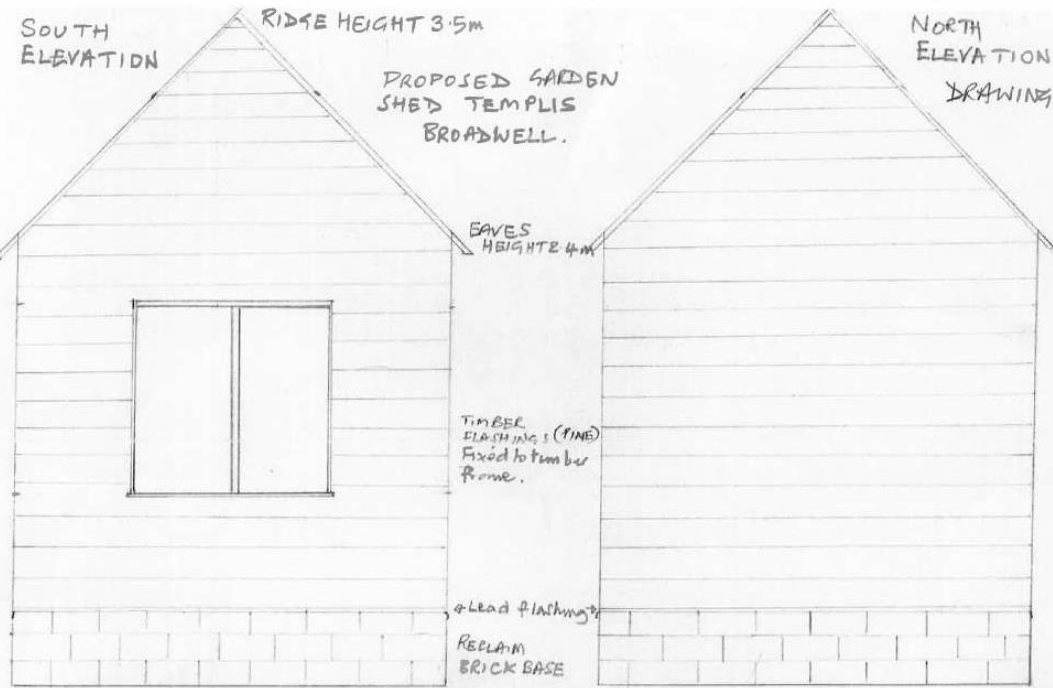 SOUTH
ELEVATION
RIDGE HEIGHT 3.5m
PROPOSED GARDEN
SHED TEMPLIS
BROADWELL.
NORTH
ELEVATION
DRAWING
EAVES
HEIGHT 2.4m
TIMBER
FLASHINGS (PINE)
Fixed to timber
frame.
Lead flashing
RECLAIM
BRICK BASE